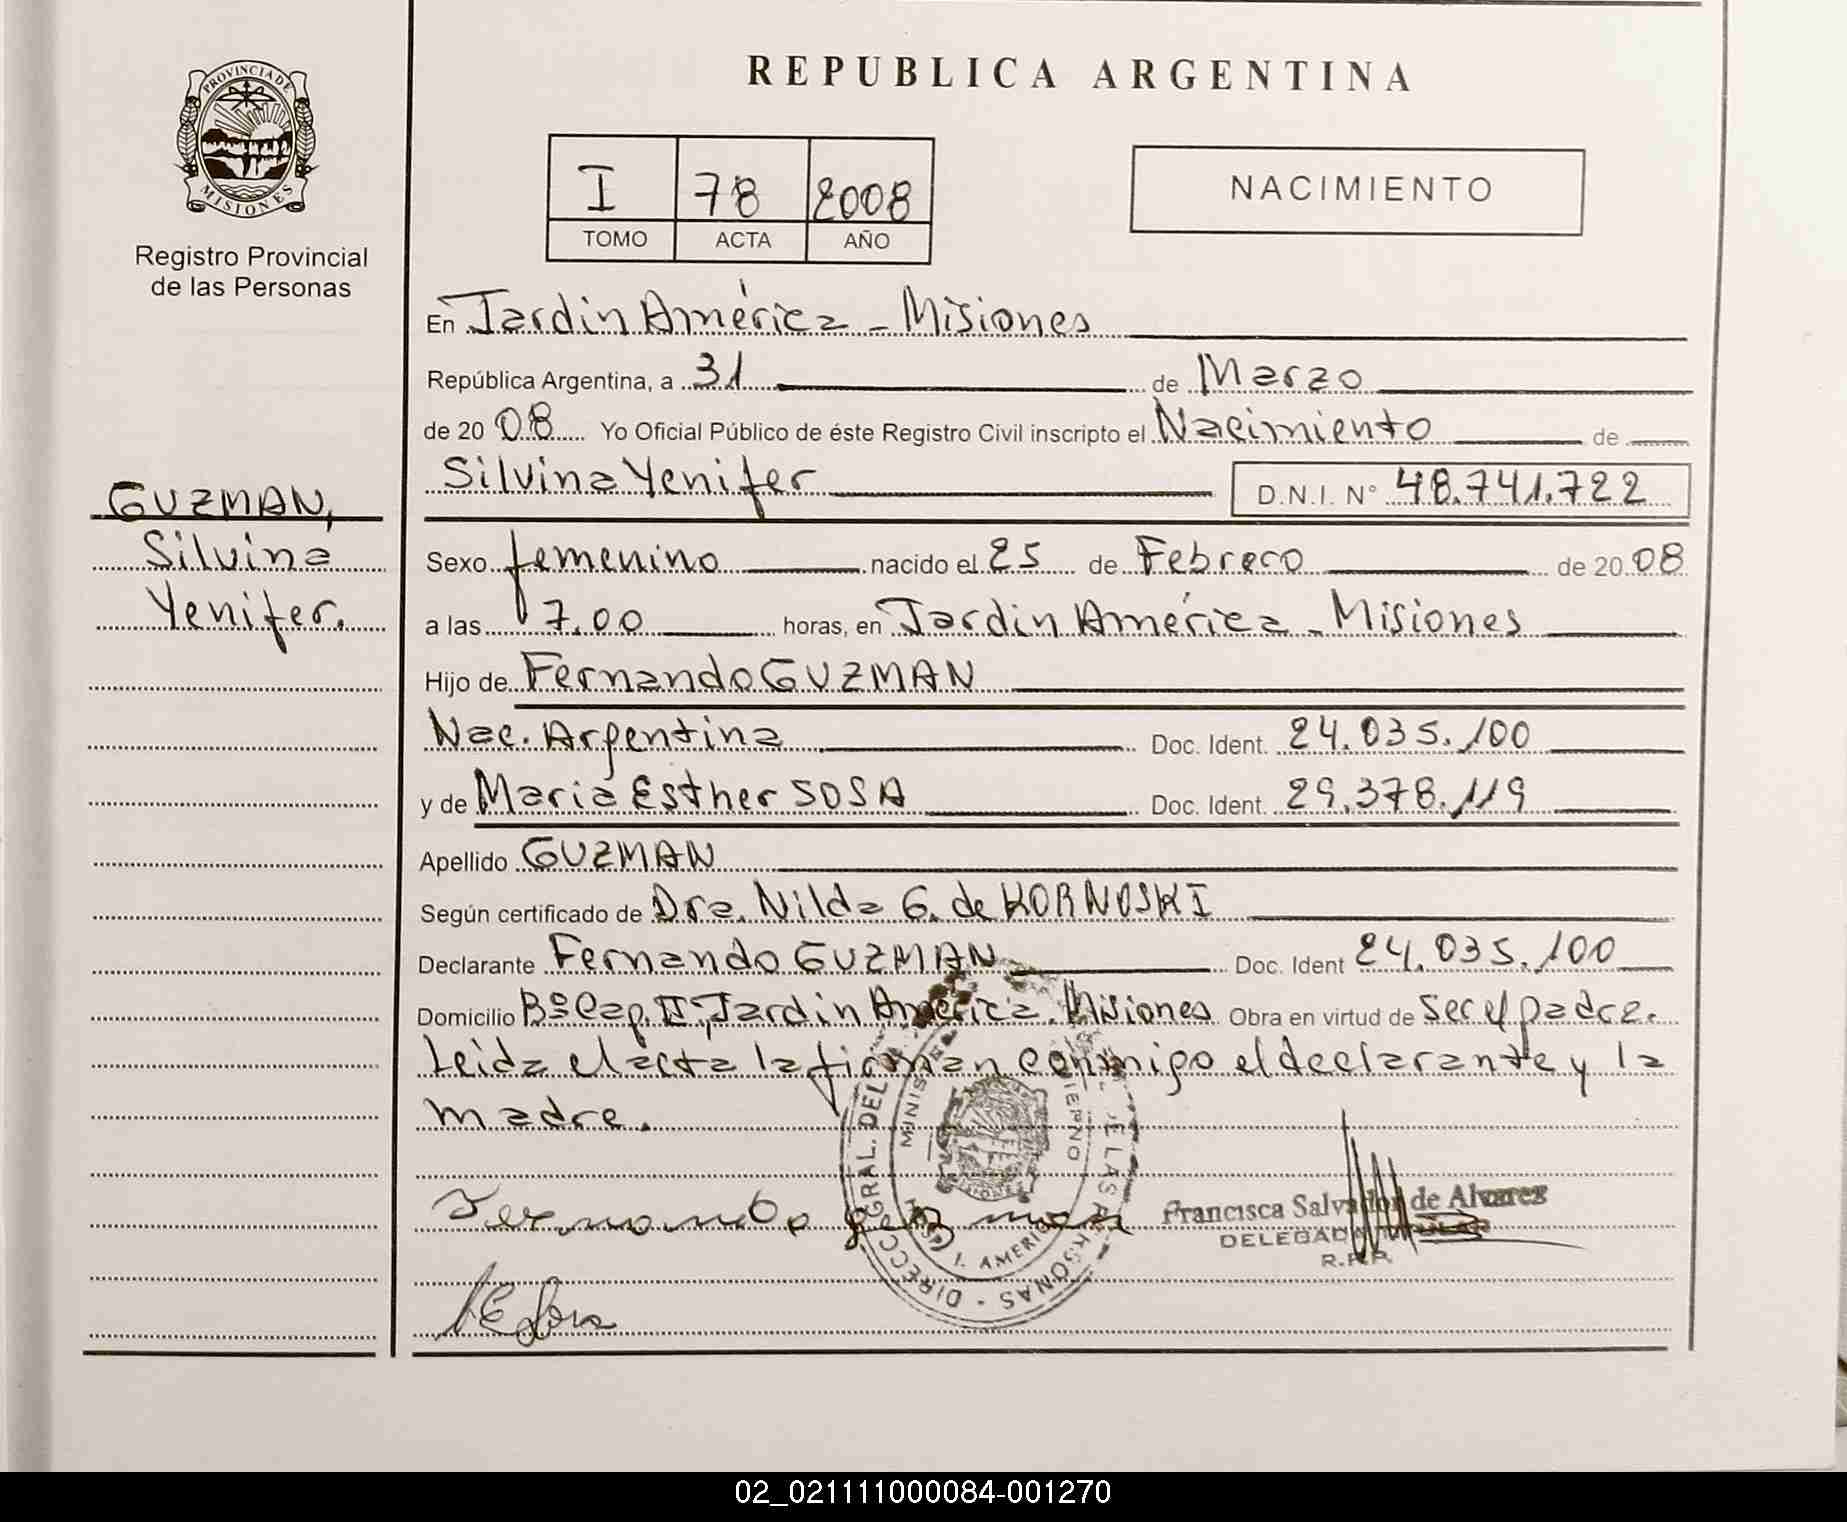 PROVINCIA DE
MISIONES
Registro Provincial
de las Personas
GUZMAN,
Silvina
Yenifer.
REPUBLICA ARGENTINA
I 78 2008
TOMO ACTA AÑO
NACIMIENTO
En Jardin América - Misiones
República Argentina, a 31 de Marzo
de 20 08 Yo Oficial Público de éste Registro Civil inscripto el Nacimiento de
Silvina Yenifer D.N.I. N° 48.741.722
Sexo femenino nacido el 25 de Febrero de 20 08
a las 7.00 horas, en Jardin América - Misiones
Hijo de Fernando GUZMAN
Nac. Argentina Doc. Ident. 24.035.100
y de Maria Esther SOSA Doc. Ident. 29.378.119
Apellido GUZMAN
Según certificado de Dra. Nilda G. de KORNOSKI
Declarante Fernando GUZMAN Doc. Ident 24.035.100
Domicilio Bº Cap. II, Jardin América. Misiones Obra en virtud de ser el padre.
Leida el acta la firman conmigo el declarante y la
madre.
DIRECC. GRAL. DEL DE LAS PERSONAS
Fernando guzman
Francisca Salvador de Alvarez
DELEGADO TITULAR
R.P.P.
ME Sosa
02_021111000084-001270